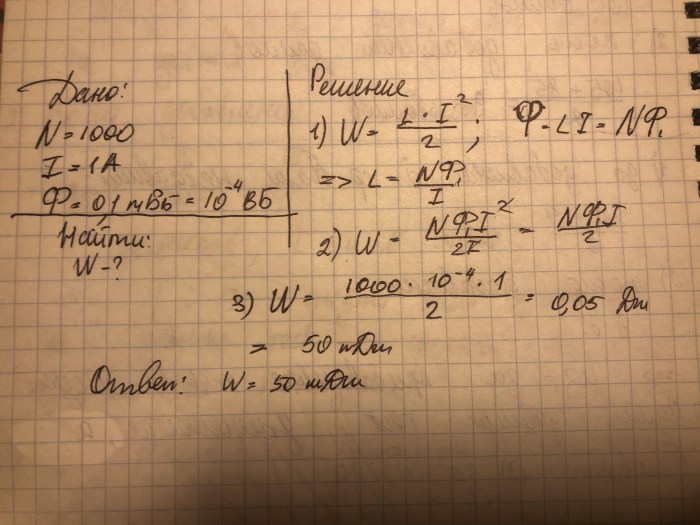 Дано:
N = 1000
I = 1 А
Ф = 0,1 mВБ = 10⁻⁴ ВБ
Найти:
W - ?
Решение
1) W = L · I² / 2 ; Ф = LI = NФ₁
=> L = NФ₁ / I
2) W = NФ₁I² / 2I = NФ₁I / 2
3) W = 1000 · 10⁻⁴ · 1 / 2 = 0,05 Дж
= 50 mДж
Ответ: W = 50 mДж